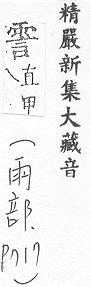 精嚴新集大藏音
霅直甲(雨部.P717)